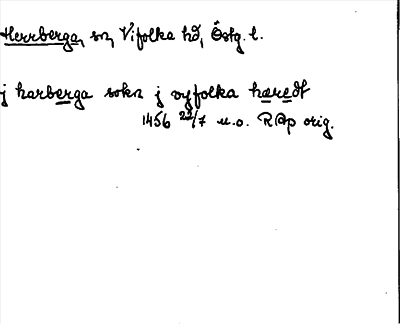 Herrberga, sn, Vifolka hd, Östg. l.
j harberga sokn j vyfolka hæredt
1456 29/7 u.o. RAp orig.